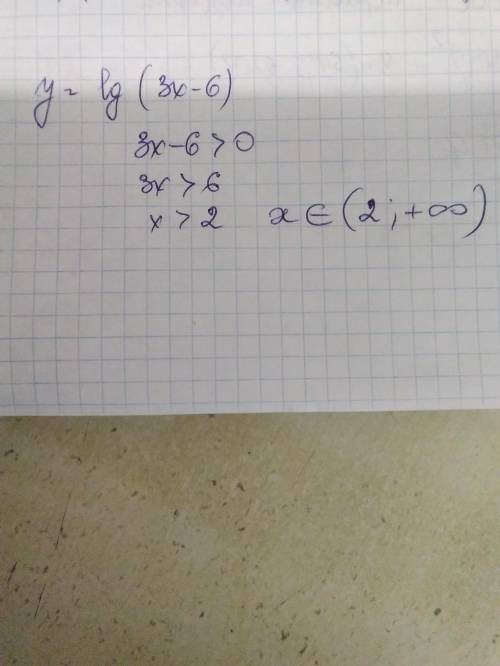 y = lg (3x-6)
3x-6>0
3x>6
x>2 x∈(2;+∞)